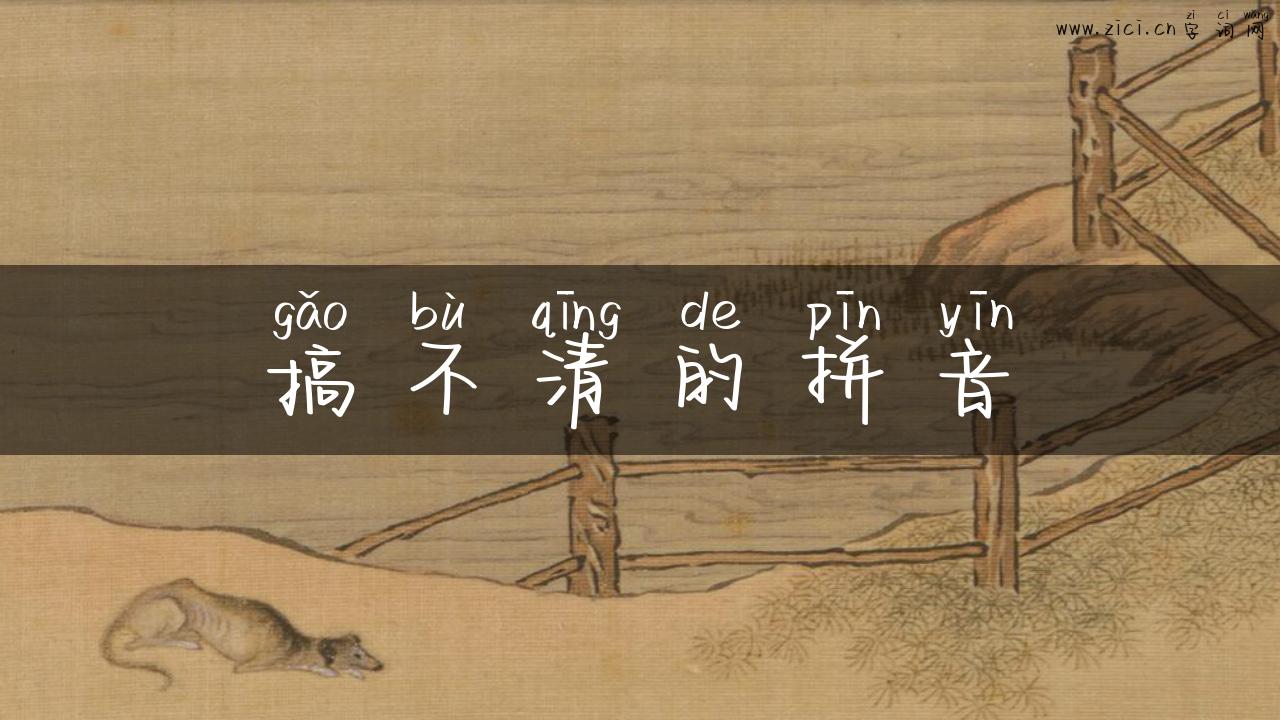 zi ci wang
www.zici.cn 字词网
gǎo bù qīng de pīn yīn
搞不清的拼音